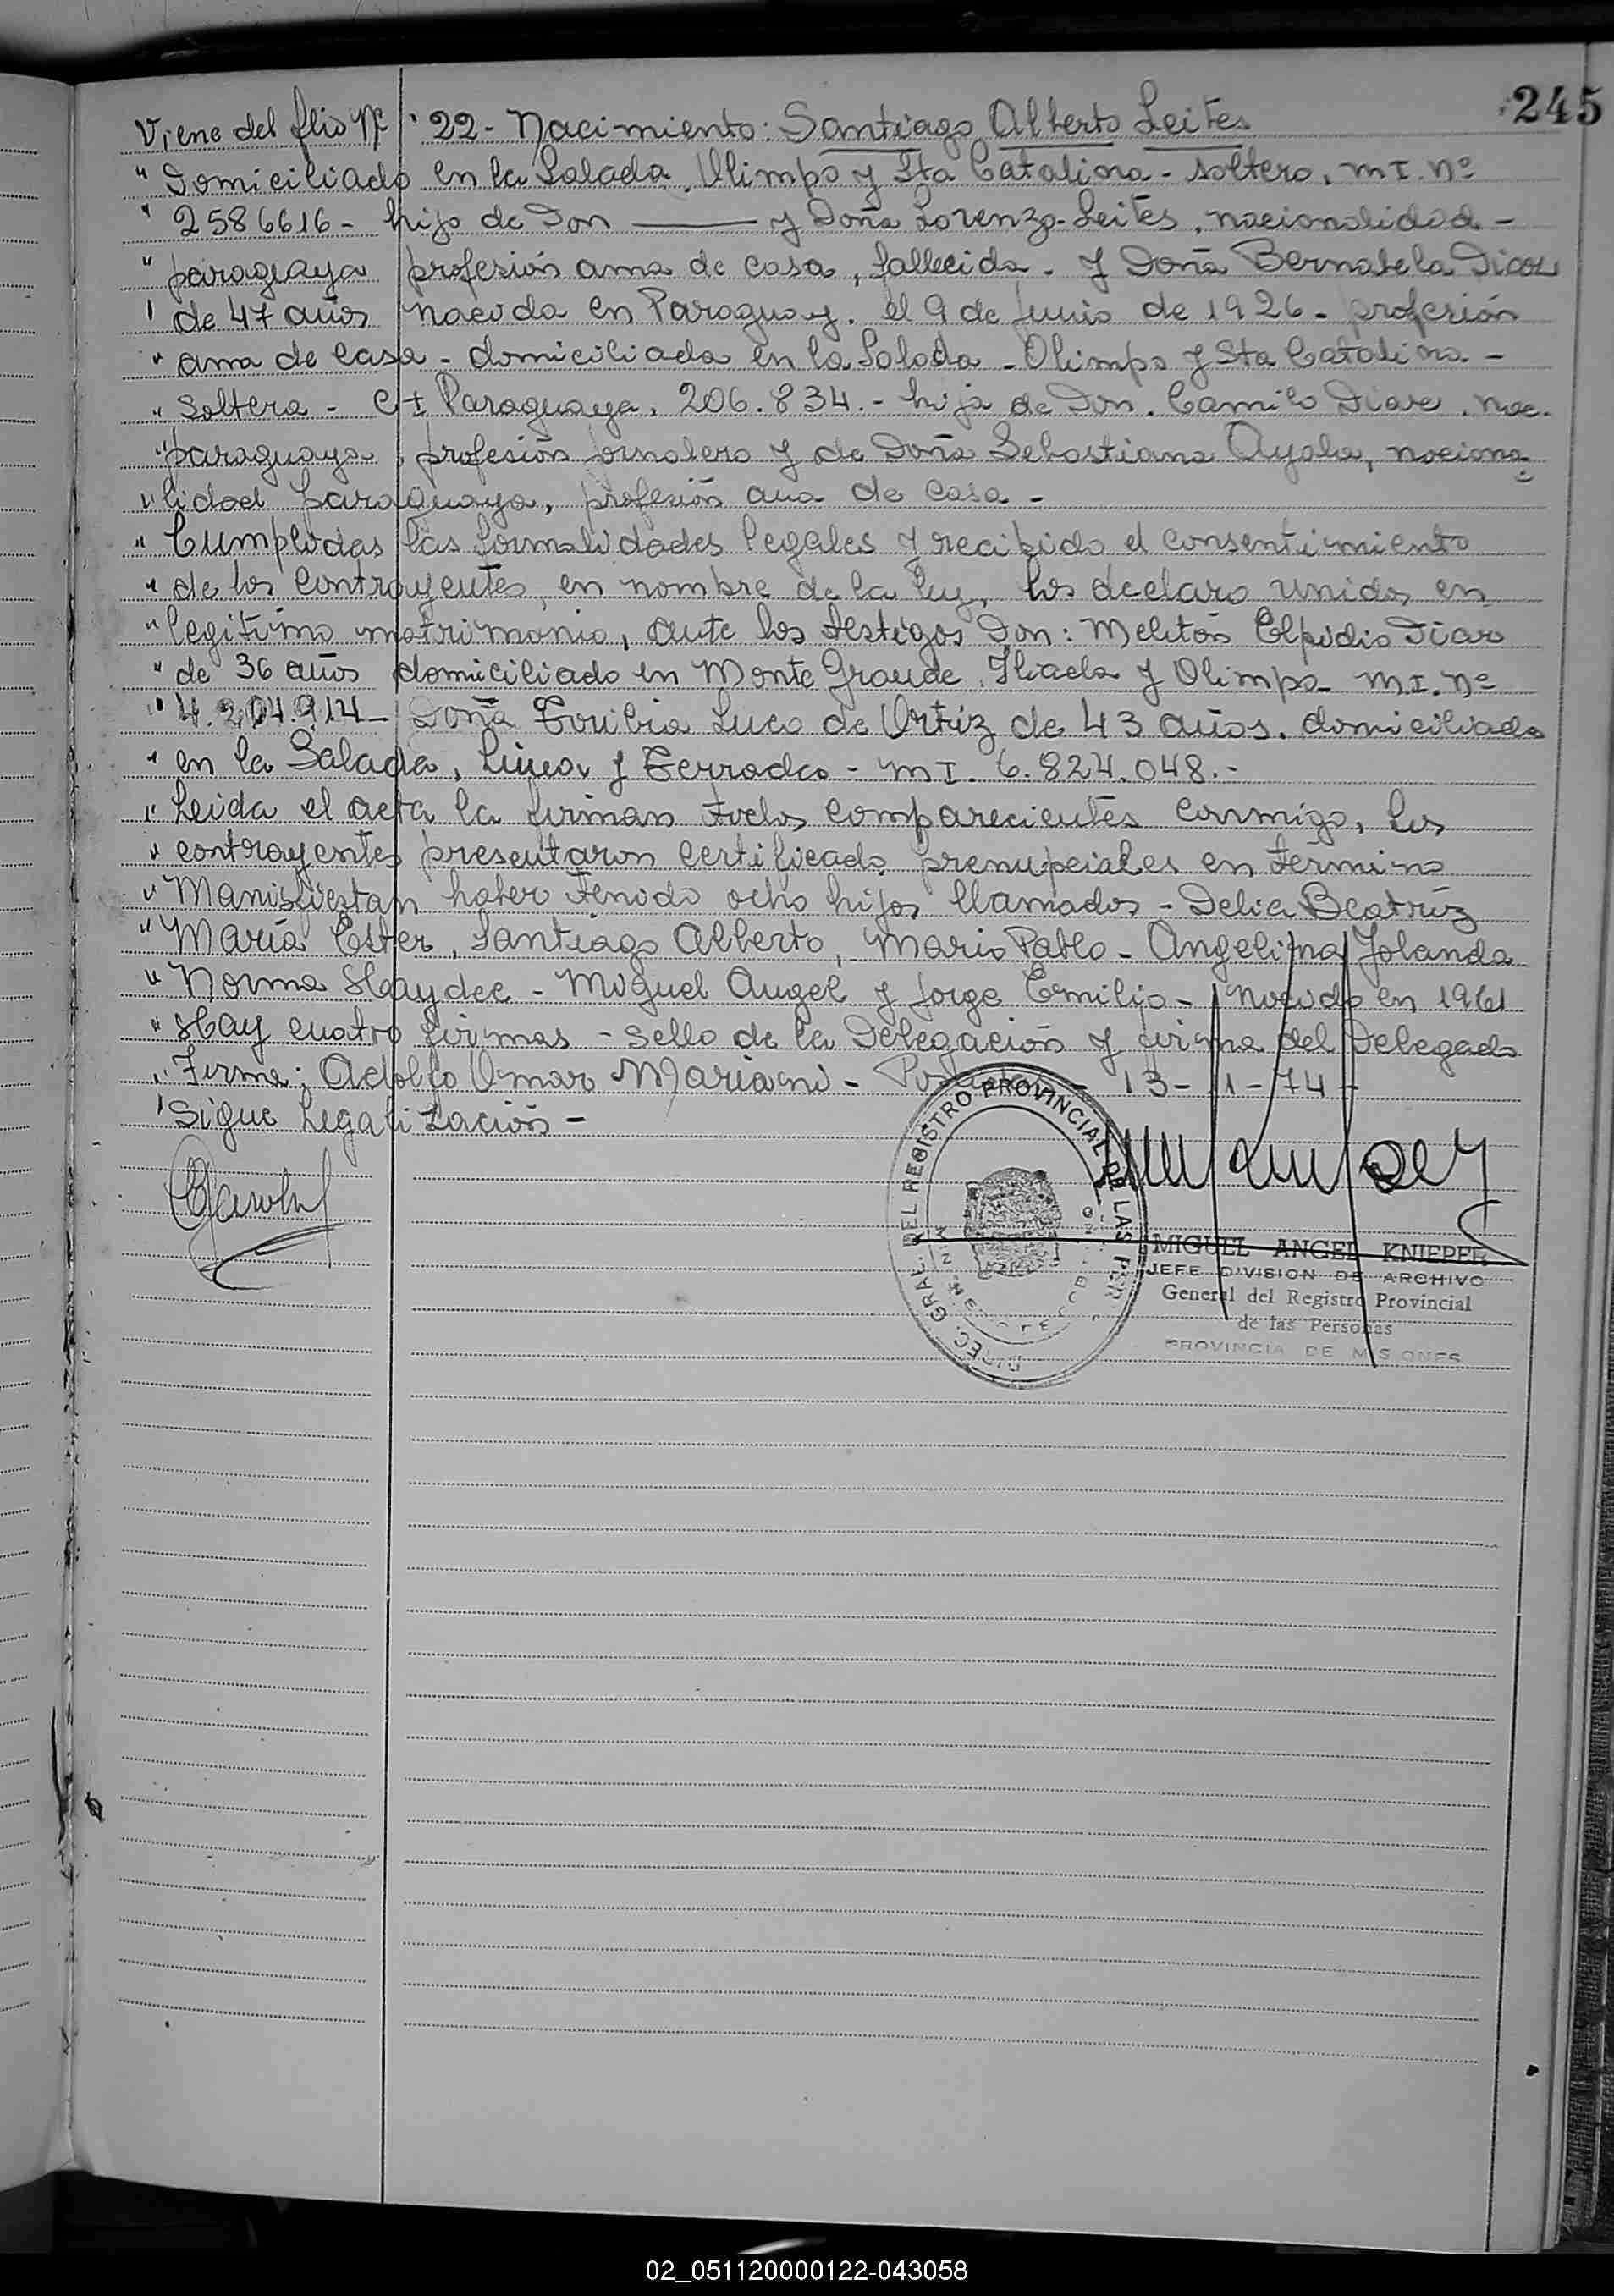 245
Viene del flio Nº 22 - Nacimiento: Santiago Alberto Leites
" Domiciliado en la Salada, Olimpo y Sta Catalina - soltero, M.I. Nº
" 2586616 - hijo de Don ——— y Doña Lorenza Leites, nacionalidad -
" paraguaya profesión ama de casa, fallecida - y Doña Bernabela Diaz
" de 47 años nacida en Paraguay. el 9 de junio de 1926 - profesión
" ama de casa - domiciliada en la Salada - Olimpo y Sta Catalina -
" Soltera - C I Paraguaya, 206.834.- hija de Don. Camilo Diaz, nac.
" paraguaya, profesión jornalero y de Doña Sebastiana Ayala, naciona
" lidad paraguaya, profesión ama de casa -
" Cumplidas las formalidades legales y recibido el consentimiento
" de los contrayentes, en nombre de la ley, los declaro unidos en
" legitimo matrimonio, ante los testigos Don: Meliton Elpidio Diaz
" de 36 años domiciliado en Monte Grande, y Olimpo - M.I. Nº
" 4.204.914 - Doña Toribia Luco de Ortiz de 43 años. domiciliada
" en la Salada, y - M I. 6.824.048.-
" Leida el acta la firman los comparecientes conmigo, Los
" contrayentes presentaron certificado prenupciales en término
" Manifiestan haber tenido ocho hijos llamados - Delia Beatríz
" María Ester, Santiago Alberto, Mario Pablo - Angelina Yolanda
" Norma Haydee - Miguel Angel y Jorge Emilio - nacido en 1961
" Hay cuatro firmas - Sello de la Delegación y firma del Delegado
" Firma: Adolfo Omar Mariani - 13-11-74 -
" Sigue Legalización -
DIREC. GRAL. DEL REGISTRO PROVINCIAL DE LAS PER
MIGUEL ANGEL KNIEPER
JEFE DIVISION DE ARCHIVO
General del Registro Provincial
de las Personas
PROVINCIA DE MISIONES
02_051120000122-043058